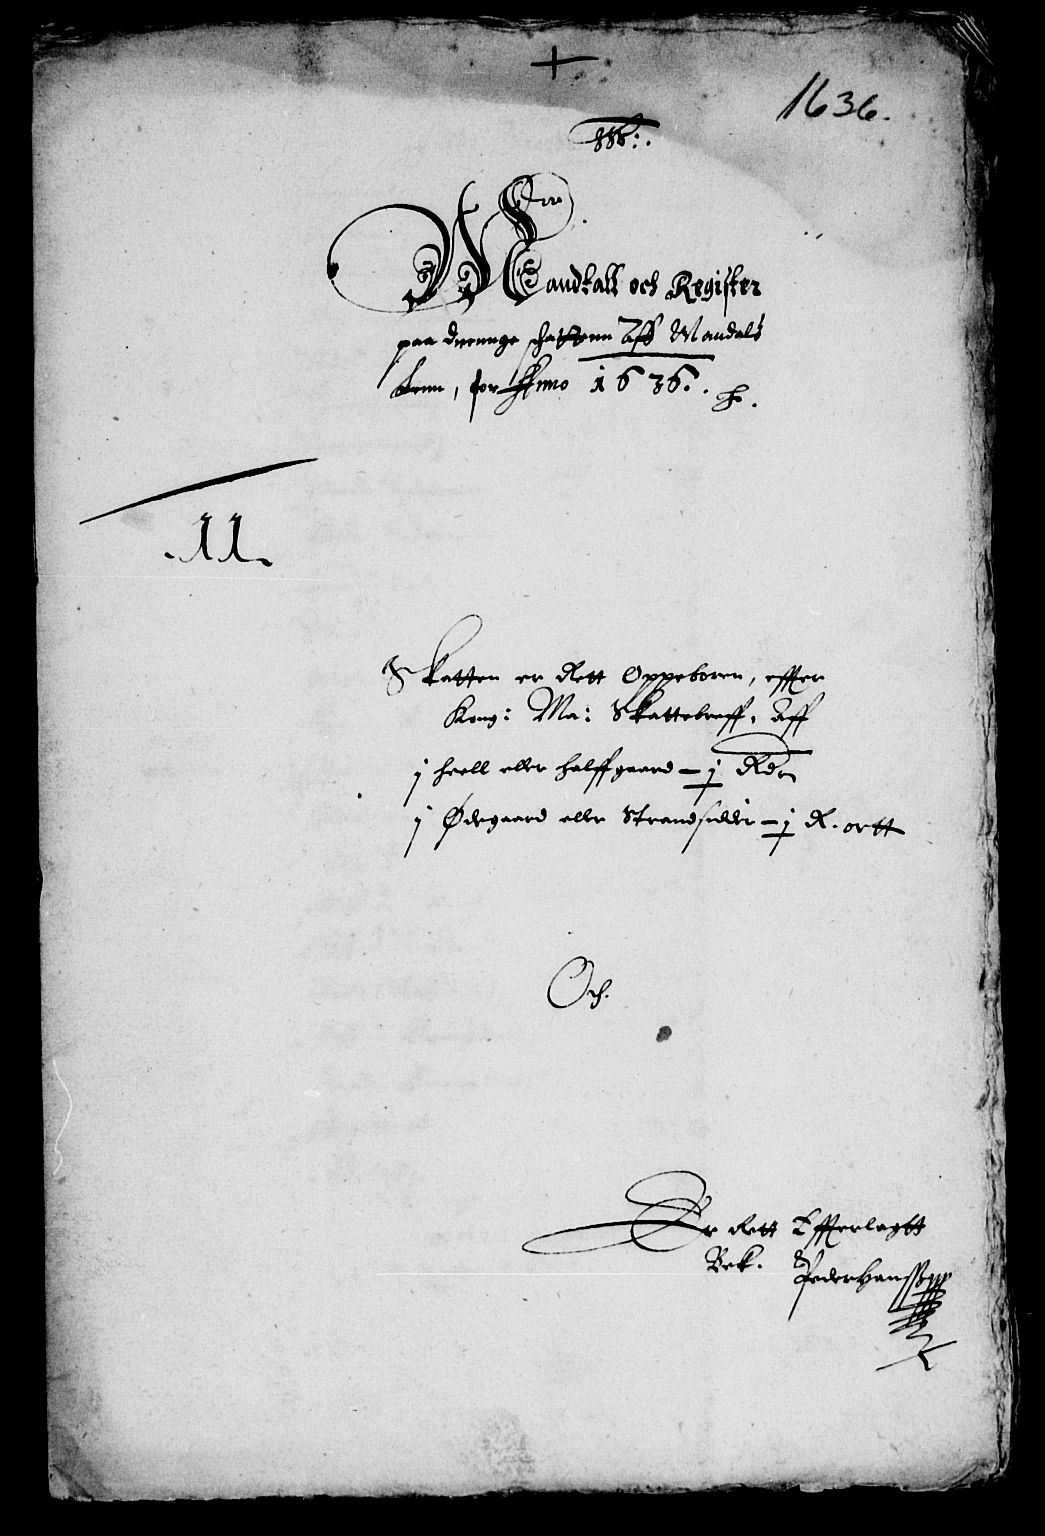 +
1636.
Mandtall och Register
paa denne schatten Aff Mandals
Leen, for Anno 1636.
11
Skatten er Rett Oppeboren, effter
Kong: Ma: Skattebreff, Aff
j heell eller halffgaard - j Rdr
j Ødegaard eller Strandsidder - j R. ortt
Och
Er Rett Efferlagtt
Bek. Peder Hanssøn